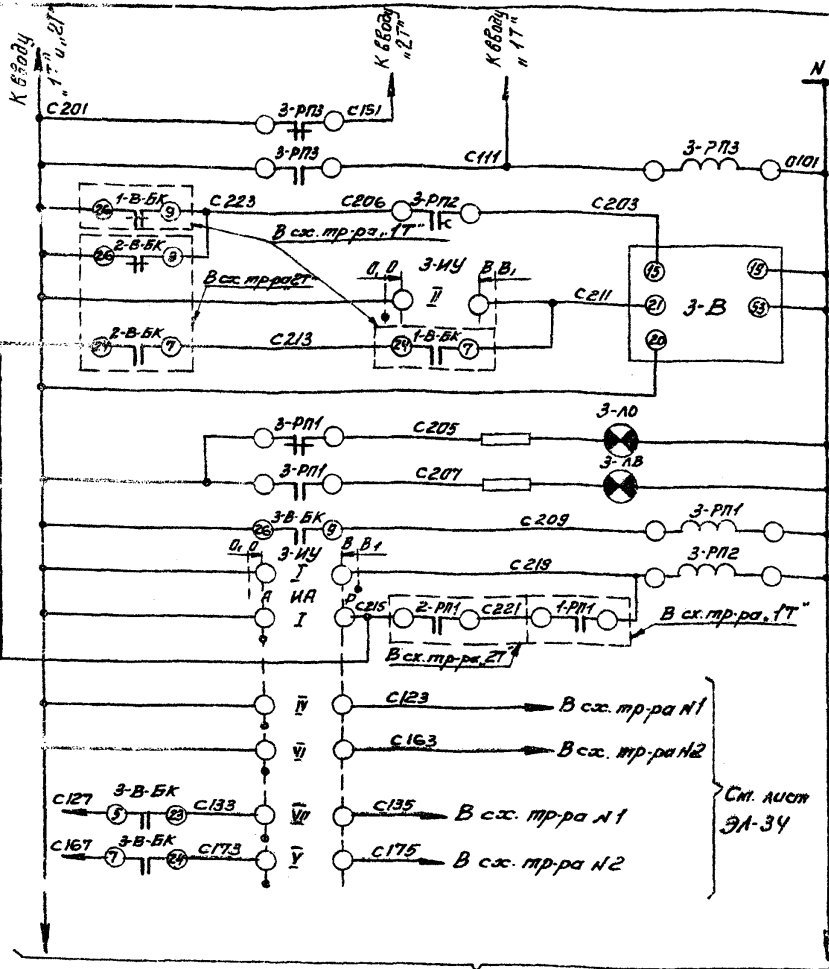 К вводу
„1Т" и „2Т"
К вводу
„2Т"
К вводу
„1Т"
N
С201
3-РП3
С151
3-РП3
С111
3-РП3
0101
26
1-В-БК
9
С223
С206
3-РП2
С203
В сх. тр-ра „1Т"
26
2-В-БК
9
В сх. тр-ра „2Т"
0, 0
3-ИУ
В В1
II
С211
15
19
21
3-В
53
20
24
2-В-БК
7
С213
24
1-В-БК
7
3-РП1
С205
3-ЛО
3-РП1
С207
3-ЛВ
26
3-В-БК
9
С209
3-РП1
0, 0
3-ИУ
В В1
I
С219
3-РП2
А
ИА
Р
I
С215
2-РП1
С221
1-РП1
В сх. тр-ра „1Т"
В сх. тр-ра „2Т"
IV
С123
В сх. тр-ра N1
VI
С163
В сх. тр-ра N2
С127
5
3-В-БК
23
С133
VII
С135
В сх. тр-ра N1
С167
7
3-В-БК
24
С173
V
С175
В сх. тр-ра N2
См. лист
ЭЛ-34